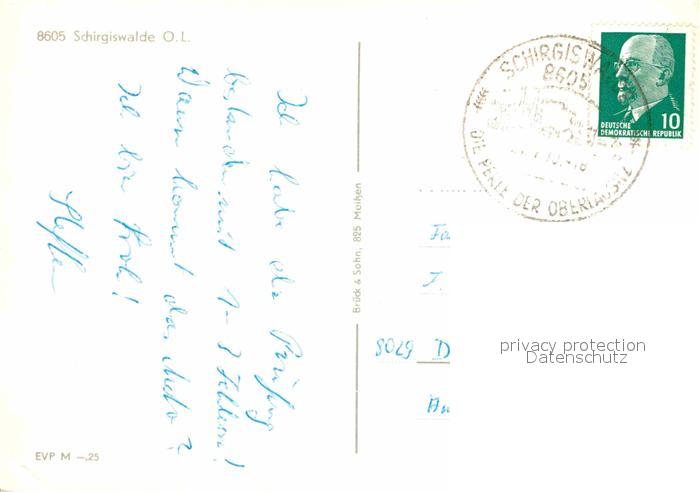 8605 Schirgiswalde O.L.
Ich habe die Prüfung
bestanden mit 1-3 Fehlern!
Wann kommt das Auto?
Ich bin froh!
Steffen
EVP M —.25
Brück & Sohn, 825 Meißen
SCHIRGISWALDE
8605
DIE PERLE DER OBERLAUSITZ
10
DEUTSCHE
DEMOKRATISCHE REPUBLIK
8029 D
privacy protection
Datenschutz